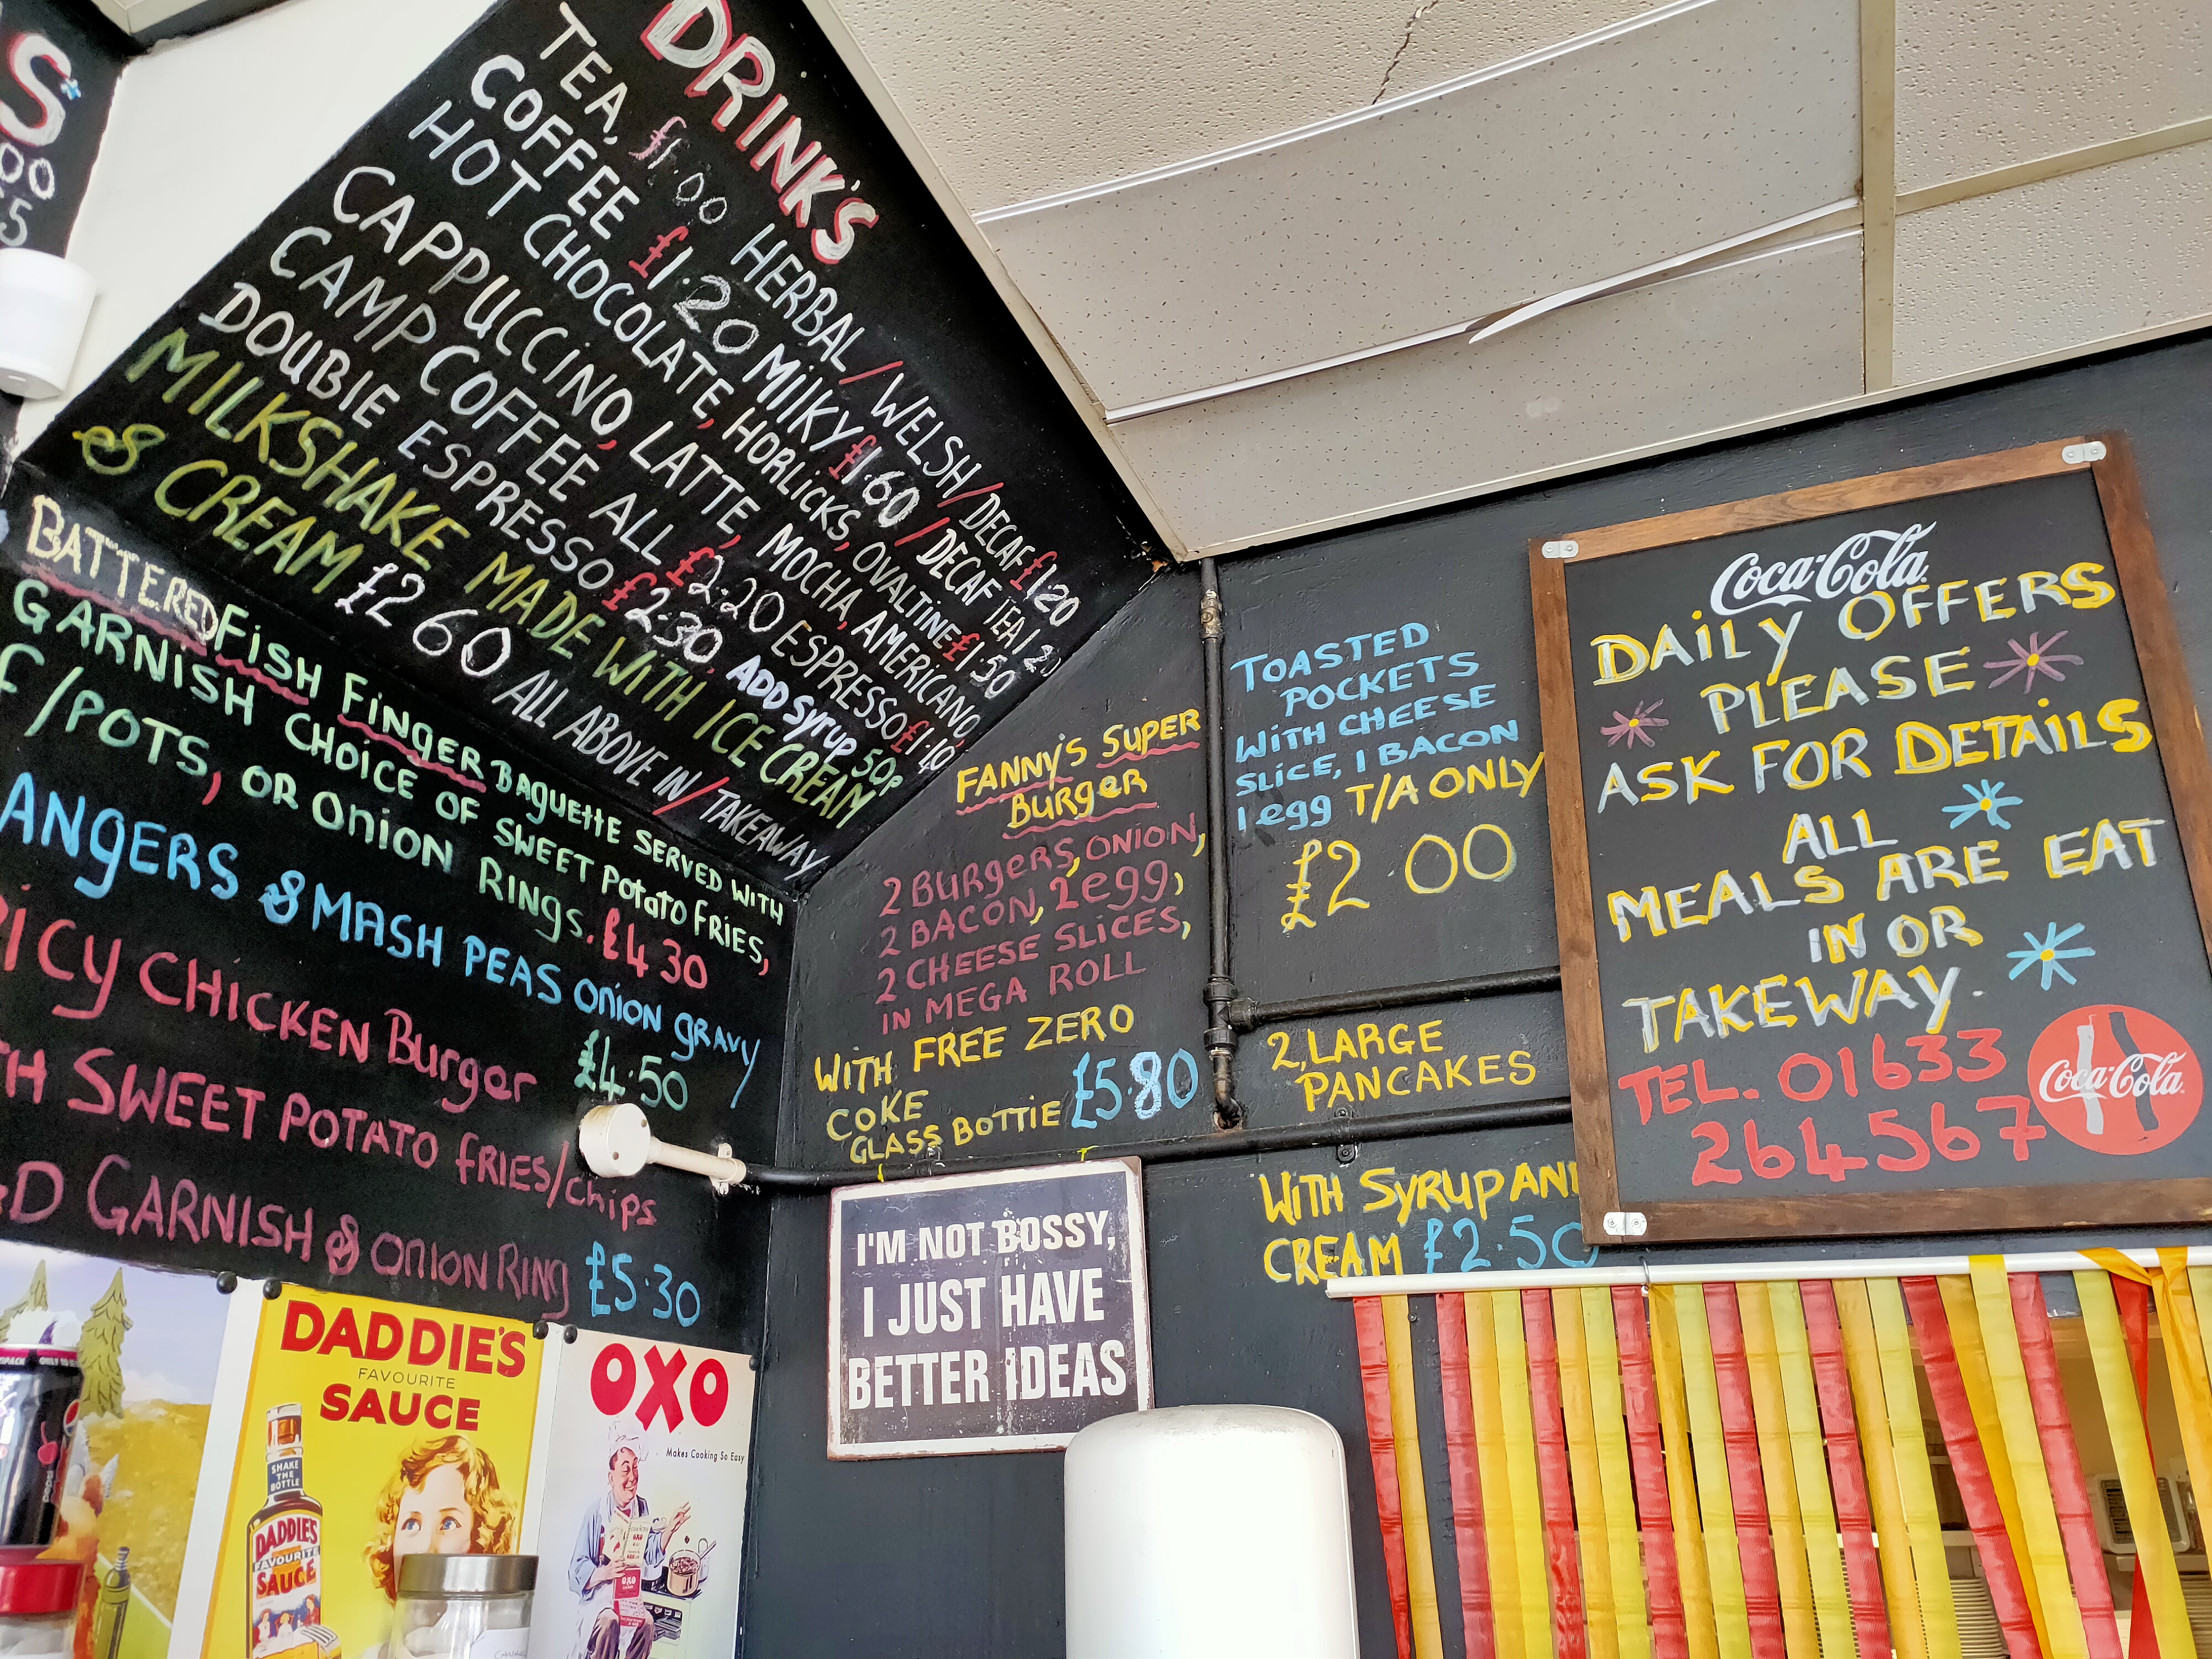 S
00
5
DRINK'S
TEA, £1.00 HERBAL / WELSH / DECAF £1.20
COFFEE £1.20 MILKY £1.60 / DECAF TEA 1.2
HOT CHOCOLATE, HORLICKS, OVALTINE £1.50
CAPPUCCINO, LATTE, MOCHA, AMERICANO,
CAMP COFFEE ALL £2.20 ESPRESSO £1.40
DOUBlE ESPRESSO £2.30, ADD SYRUP 50p
MILKSHAKE MADE WITH ICE CREAM
& CREAM £2 60 ALL ABOVE IN / TAKEAWAY
BATTERED FISH FINGER BAGUETTE SERVED WITH
GARNISH CHOICE OF SWEET POTATO FRIES,
F/POTS, OR ONION RINGS. £4 30
ANGERS & MASH PEAS ONION GRAVY
£4.50
ICY CHICKEN BURGER
TH SWEET POTATO FRIES/CHIPS
D GARNISH & ONION RING £5.30
FANNY'S SUPER
BURGER
2 BURGERS, ONION,
2 BACON, 2 EGG,
2 CHEESE SLICES,
IN MEGA ROLL
WITH FREE ZERO
COKE
GLASS BOTTlE £5.80
TOASTED
POCKETS
WITH CHEESE
SLICE, 1 BACON
1 EGG T/A ONLY
£2 00
2, LARGE
PANCAKES
WITH SYRUP AN
CREAM £2.50
Coca-Cola
DAILY OFFERS
PLEASE
ASK FOR DETAILS
ALL
MEALS ARE EAT
IN OR
TAKEWAY.
TEL. 01633
264567
Coca-Cola
I'M NOT BOSSY,
I JUST HAVE
BETTER IDEAS
DADDIE'S
FAVOURITE
SAUCE
SHAKE
THE
BOTTLE
DADDIE'S
FAVOURITE
SAUCE
OXO
Makes Cooking So Easy
OXO